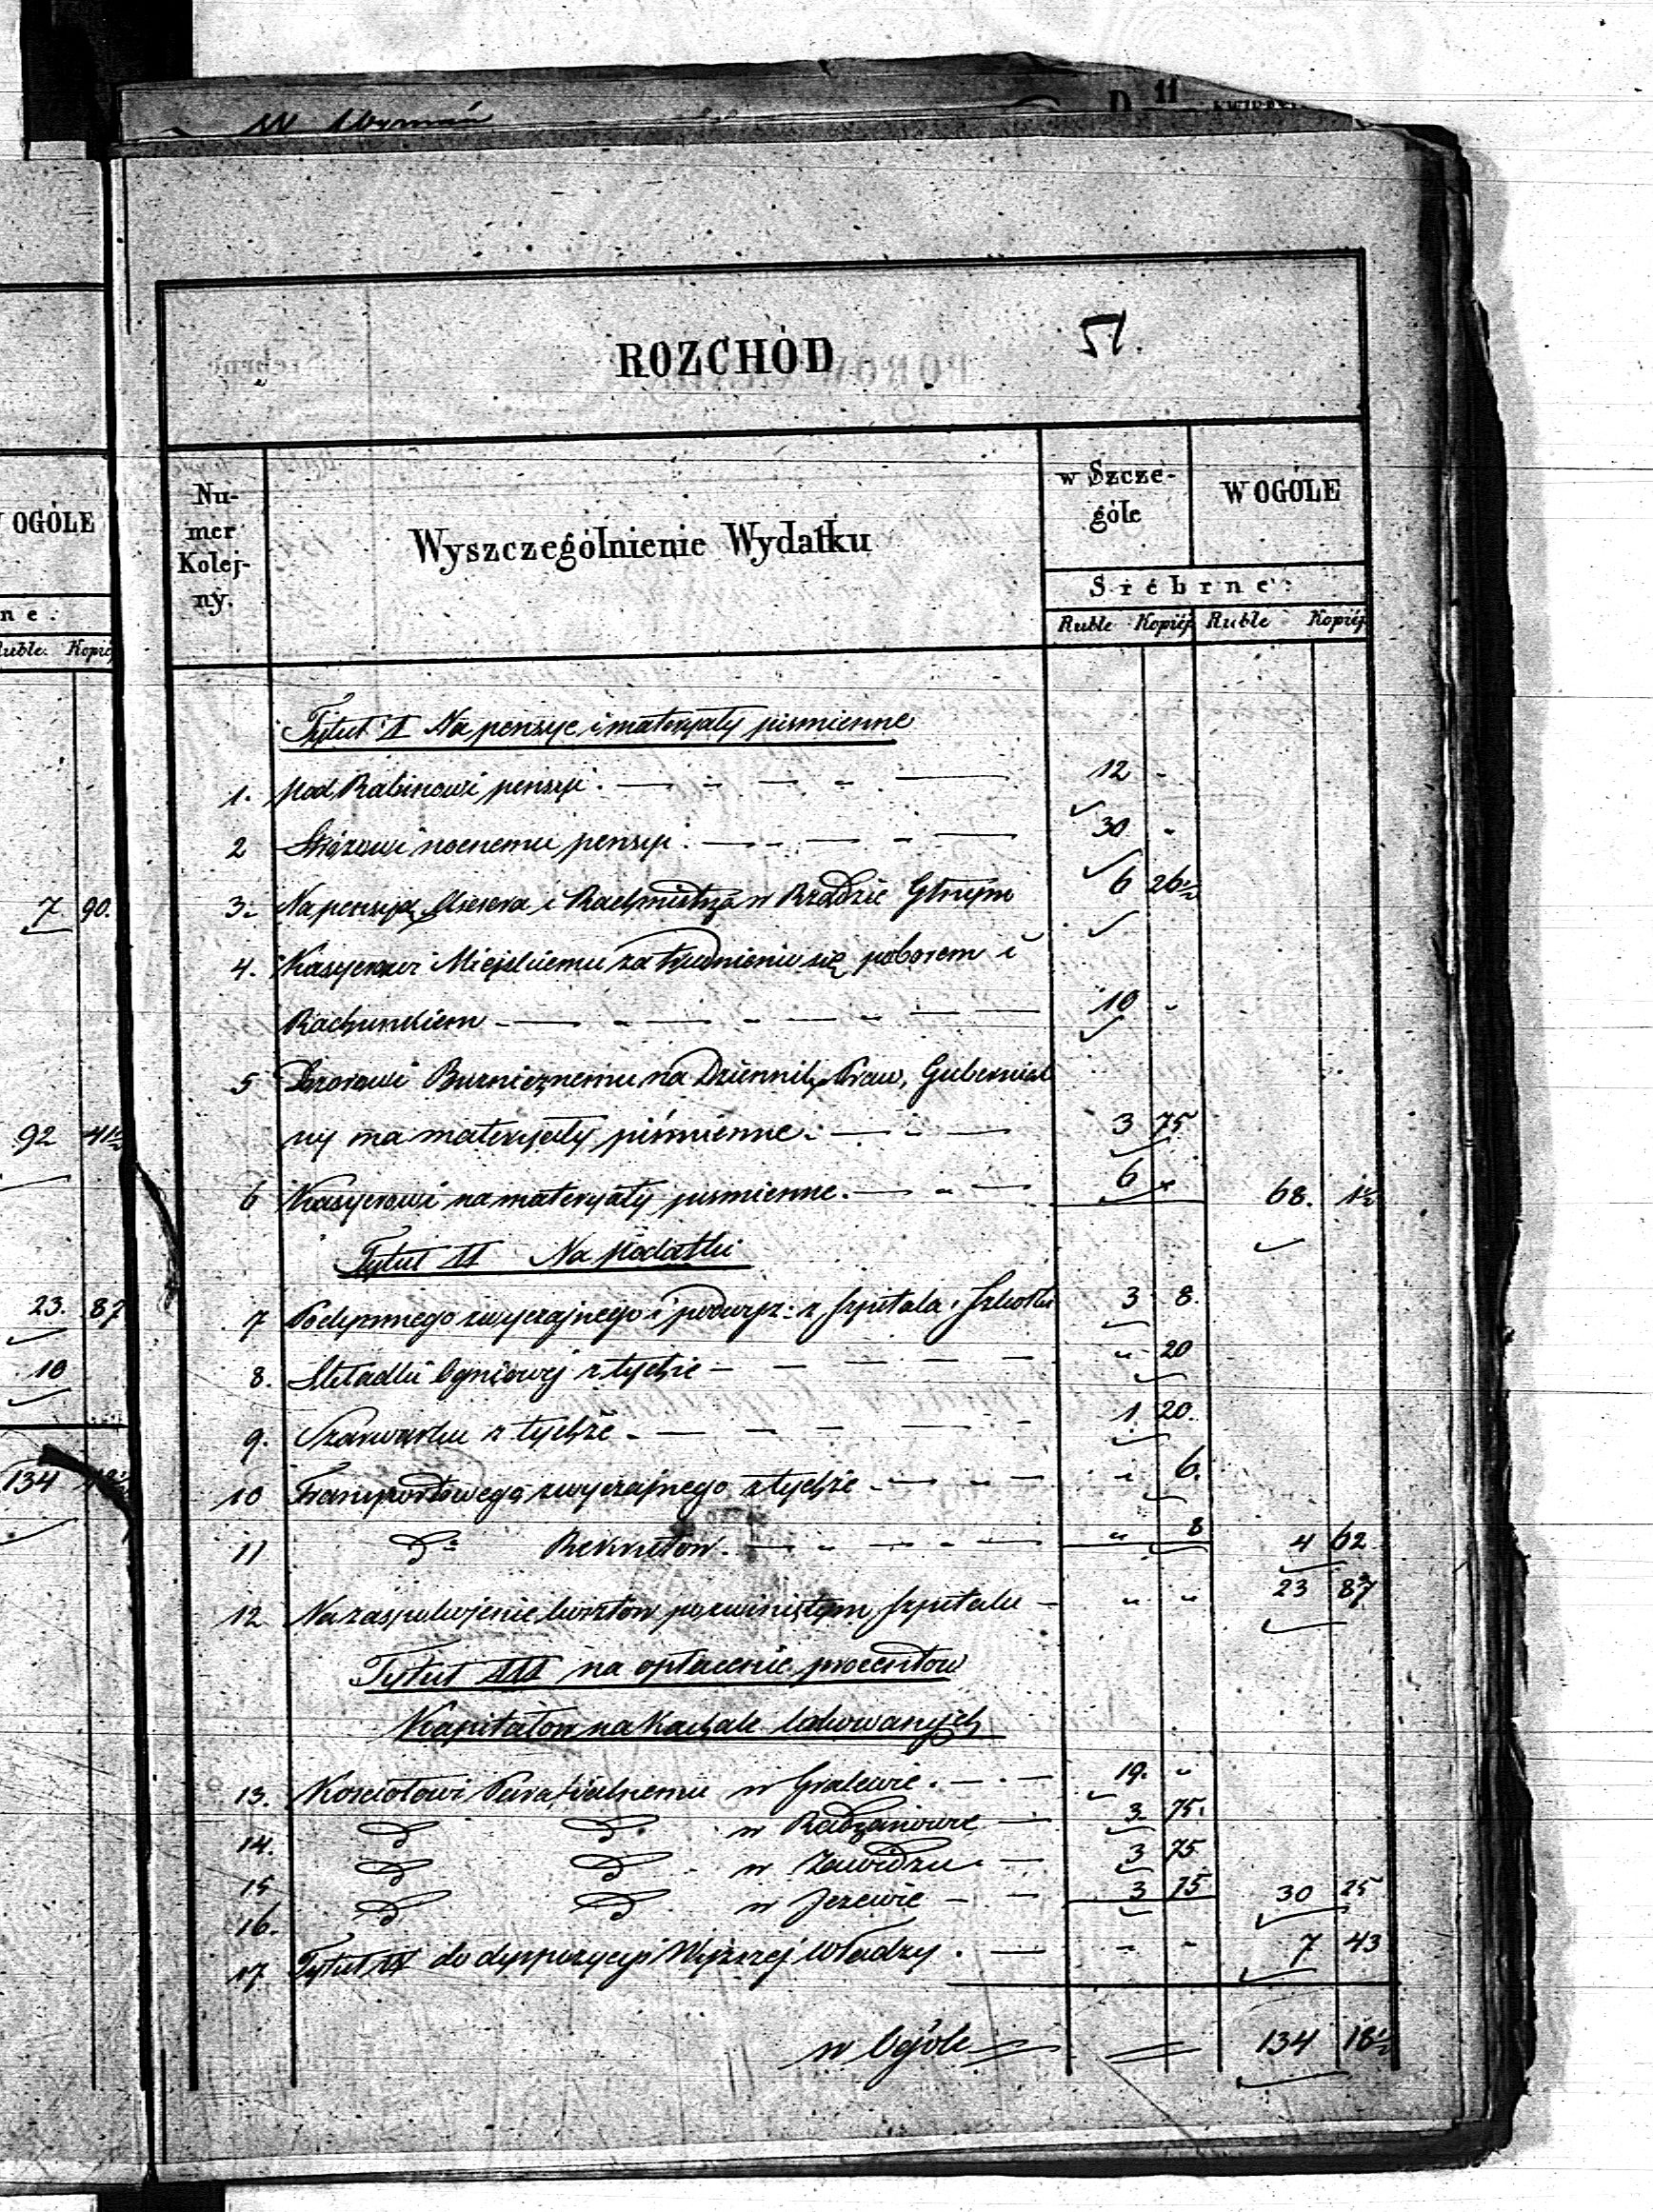 D 11
OGÓLE
ne:
Ruble. Kopiéj
7 90.
92 41½
23. 87
10
134 18½
ROZCHÓD
51.
Numer Kolejny.
Wyszczególnienie Wydatku
w Szczególe
W OGÓLE
Srébrne:
Ruble Kopiéj Ruble Kopiéj
Tytuł I Na pensye i materyały pismienne
1. pod Rabinowi pensyi. 12 -
2 Stróżowi nocnemu pensyi. 30 -
3. Na pensyą Assesora i Rachmistrza w Rządzie Głnym 6 26½
4. Kasyerowi Miejskiemu zatrudnieniu się poborem i
Rachunkiem 10 -
5 Dozorowi Bużnicznemu na Dziennik Praw, Gubernial
ny ina materyały piśmienne. 3 75
6 Kasyerowi na materyały pismienne. 6 - 68. 1½
Tytuł II Na podatki
7 Podymnego zwyczajnego i podwyż: z Szpitala i Szkółki 3 8.
8. Składki Ogniowej z tychże " 20
9. Szarwarku z tychże 1. 20.
10 Transportowego zwyczajnego z tychże " 6.
11 do Rekrutow. " 8 4 62
12 Na zaspokojenie kosztów powinistym Szpitalu " " 23 87
Tytuł III na opłacenie procentow
Kapitałow na Kachale lokowanych
13. Kosciołowi Parafialnemu w Gralewie. 19. "
14. d d w Radzanowie 3. 75.
15 d d w Zawidzu. 3 75
16. d d w Jezewie 3 75 30 25
17. Tytuł IV do dyspozycyi Wyższej Władzy. - - 7 43
w Ogóle 134 18½